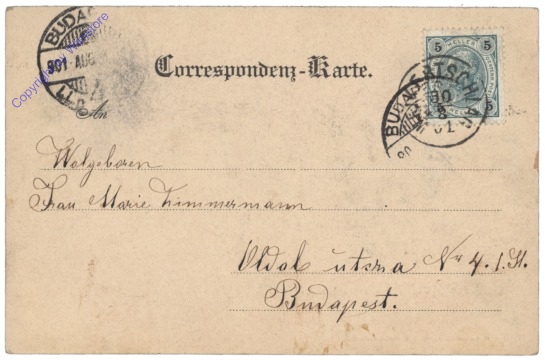 BUDAP
901 AUG
Copyright
store
Correspondenz-Karte.
5 HELLER 5
5 5
BUDAPE
30
8
01
An
Wolgeboren
Frau Marie Zimmermann
Oldal utsza Nr 4. I. St.
Budapest.